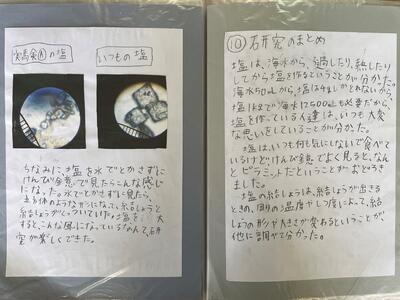 実験④の塩
いつもの塩
ちなみに、塩を水でとかさずに
けんび鏡で見たらこんな感じ
になった。水でとかさずに見たら、
立方体のような形になって、結しょうと
結しょうがくっついていた。塩を
すると、こんな風になっているなんて、研
究が楽しくできた。
⑩研究のまとめ
塩は、海水から、過したり、熱したり
してから塩を作るということが分かった。
海水50mLから、塩は1gしかとれないから
塩1kgで海水は2500Lも必要だから、
塩を作っている人達は、いつも大変
な思いをしていることが分かた。
塩はいつも何も気にしないで食べて
いるけどけんび鏡でよく見ると、なん
とピラミッドだということがおどろき
ました。
塩の結しょうは、結しょうが出きる
ときの、周りの温度やしつ度によって、結し
ょうの形や大きさが変わるということが、
他に調べて分かった。